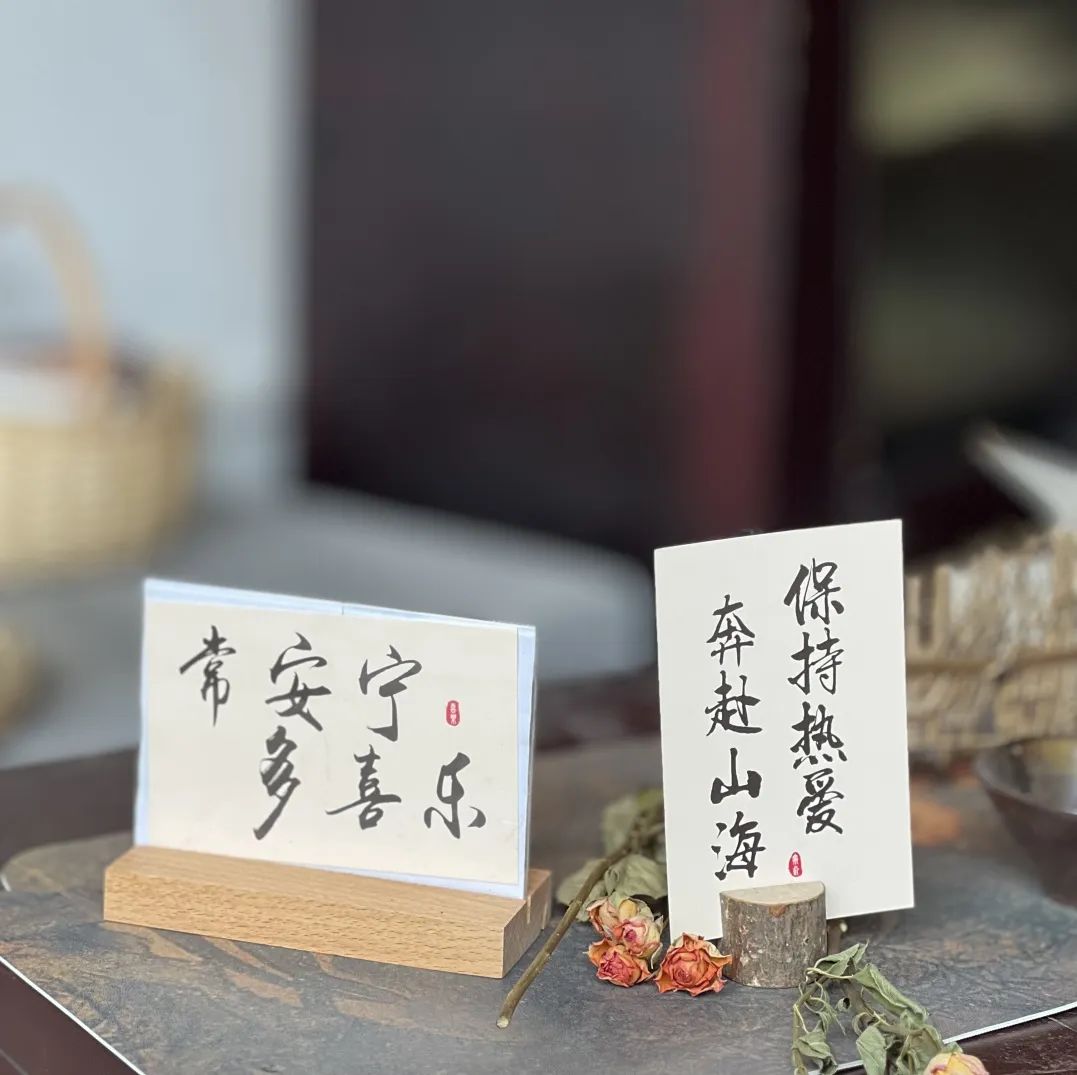 常安宁
多喜乐
保持热爱
奔赴山海